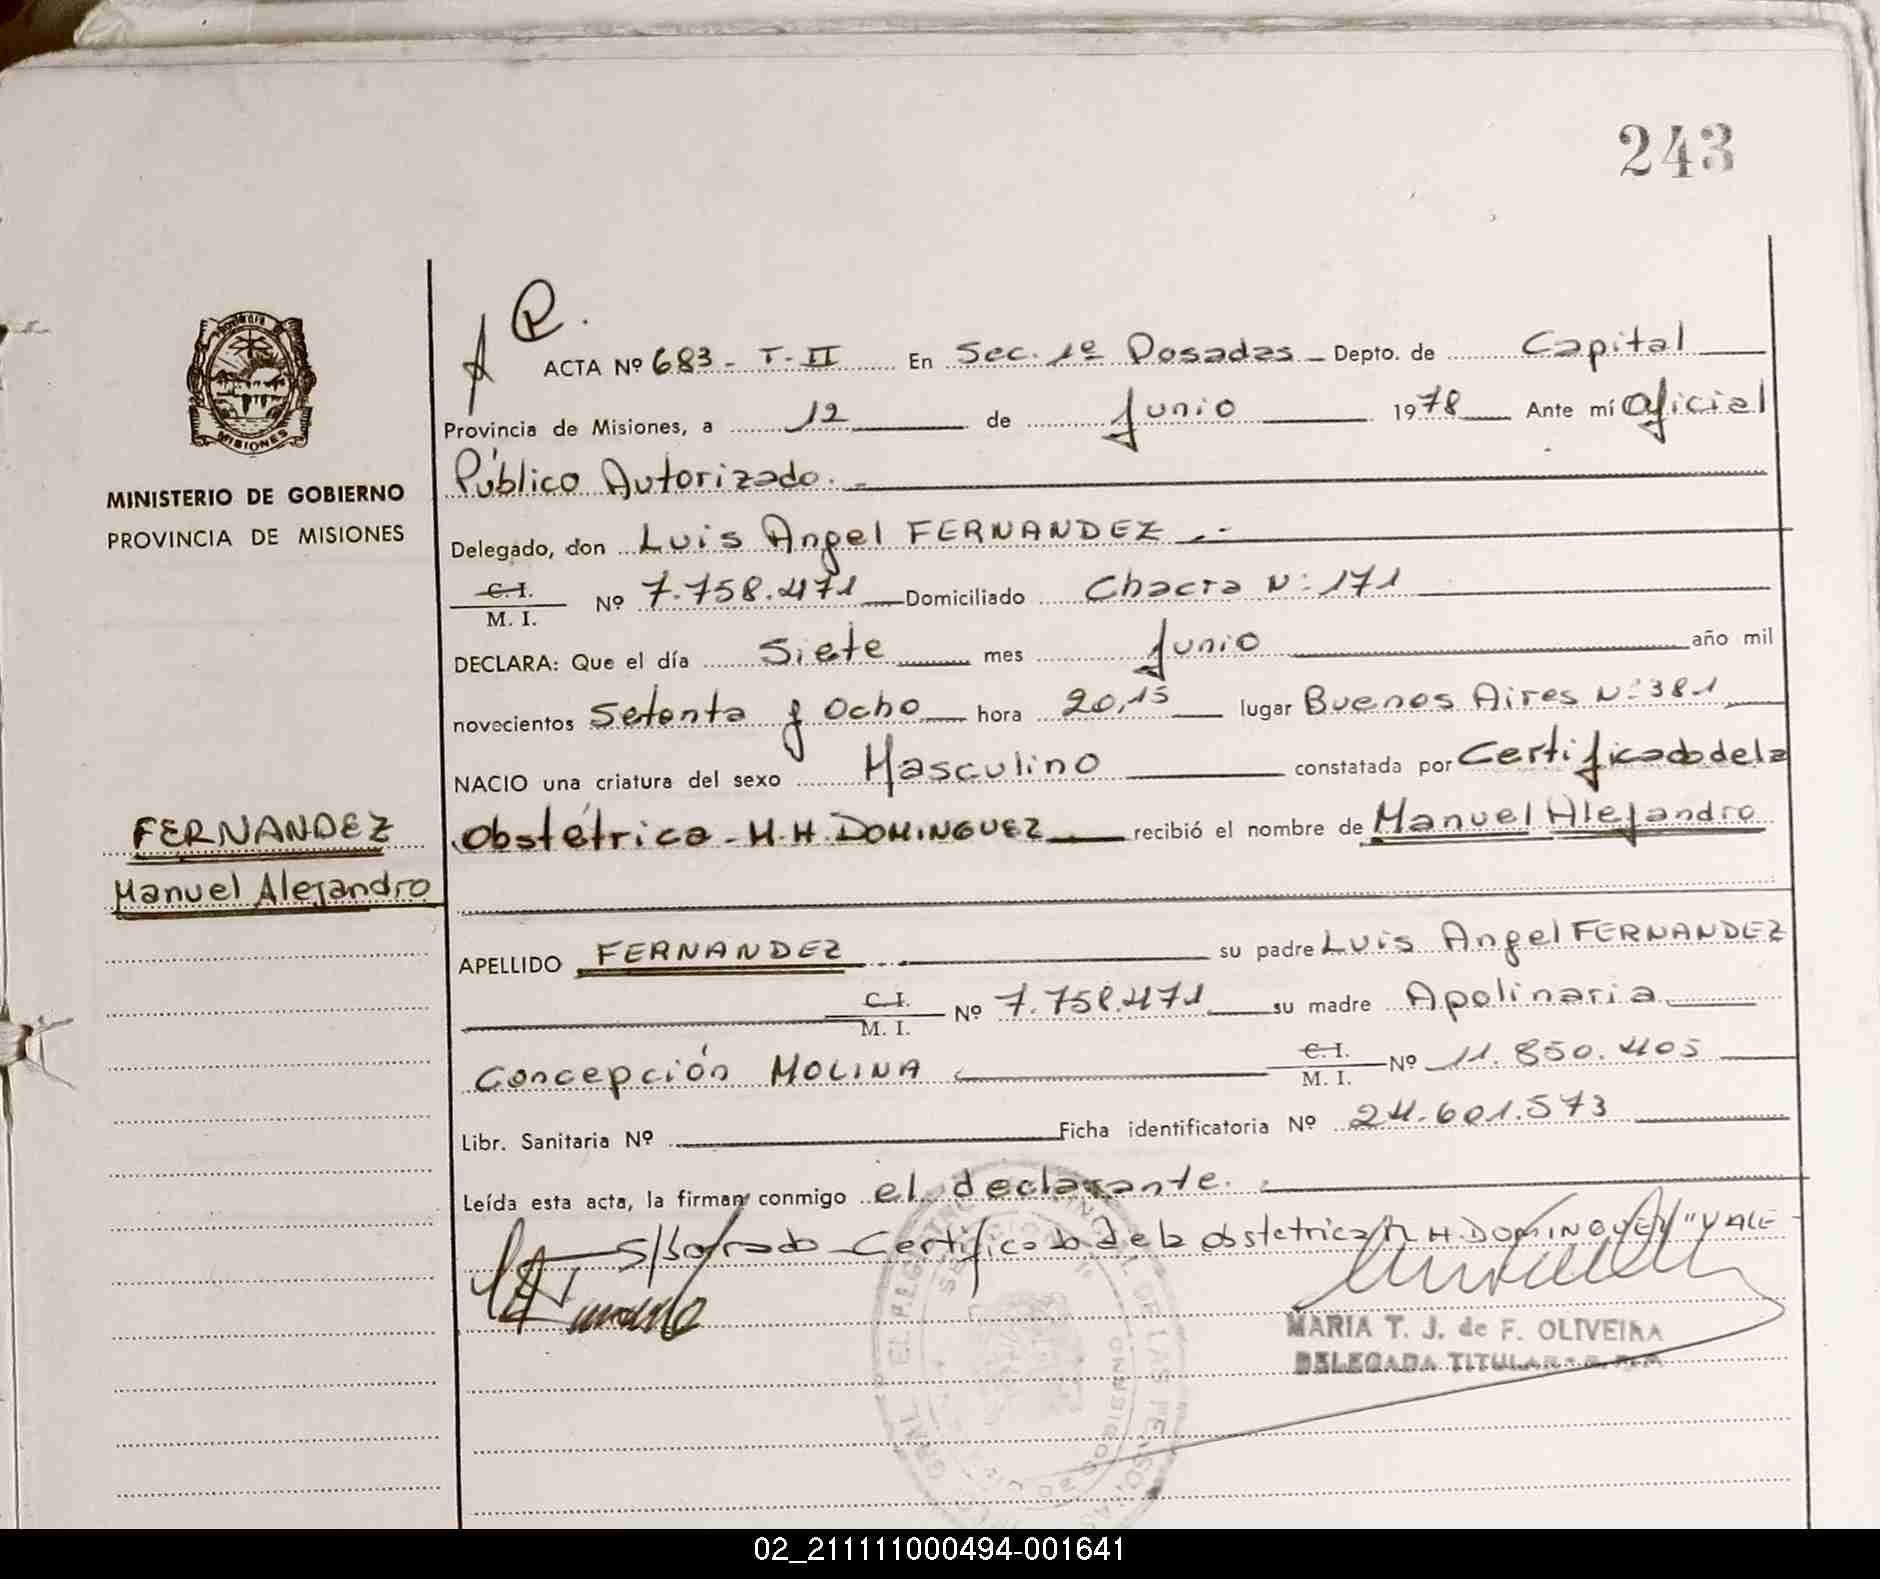 243
R.
ACTA Nº 683 - T-II En Sec. 1º Posadas - Depto. de Capital
Provincia de Misiones, a 12 de Junio 1978 Ante mí Oficial
Público Autorizado. -
MINISTERIO DE GOBIERNO
PROVINCIA DE MISIONES
MISIONES
Delegado, don Luis Angel FERNANDEZ . -
C. I.
M. I. Nº 7.758.471 Domiciliado Chacra N: 171
DECLARA: Que el día Siete mes Junio año mil
novecientos Setenta y Ocho hora 20,15 lugar Buenos Aires N: 381
NACIO una criatura del sexo Masculino constatada por Certificado de la
Obstétrica - H. H. DOMINGUEZ recibió el nombre de Manuel Alejandro
FERNANDEZ
Manuel Alejandro
APELLIDO FERNANDEZ su padre Luis Angel FERNANDEZ
C. I.
M. I. Nº 7.758.471 su madre Apolinaria
Concepción MOLINA C. I.
M. I. Nº 11.850.405
Libr. Sanitaria Nº Ficha identificatoria Nº 24.601.573
Leída esta acta, la firman conmigo el declarante.
S/Borrado - Certificado de la obstetrica H. H. DOMINGUEZ "VALE
MARIA T. J. de F. OLIVEIRA
DELEGADA TITULAR
02_211111000494-001641